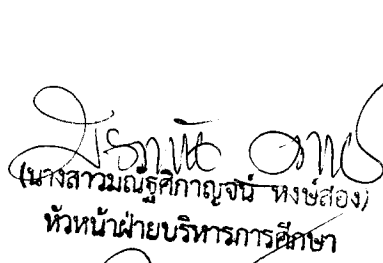 (นางสาวมณัฐศิกาญจน์ หงษ์สอง)
หัวหน้าฝ่ายบริหารการศึกษา